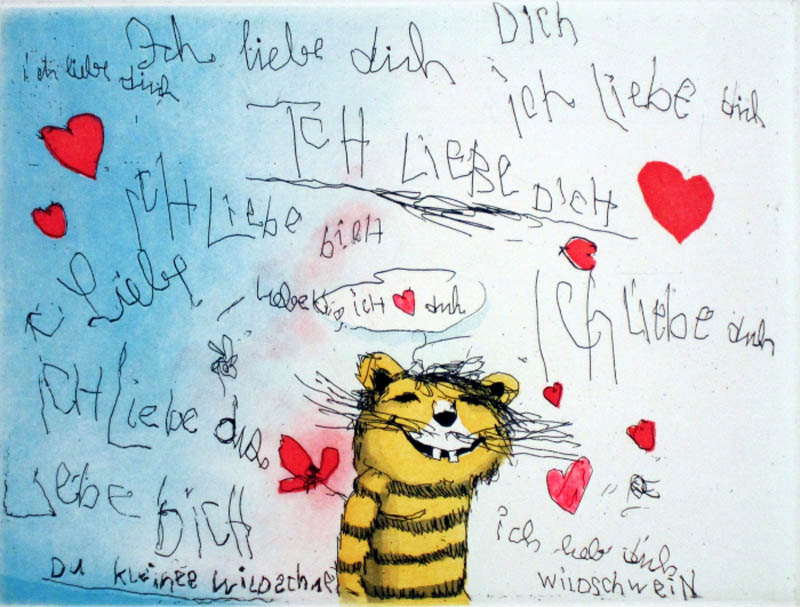 Dich
Ich liebe dich
ich liebe dich
ich liebe dich
ICH LIEBE DICH
ICH LIEBE DICH
Liebe
ich ♥ dich
ICH Liebe dich
ICH Liebe dich
Liebe DICH
ich liebe dich
WILDSCHWEIN
DU KLEINES WILDSCHWEI